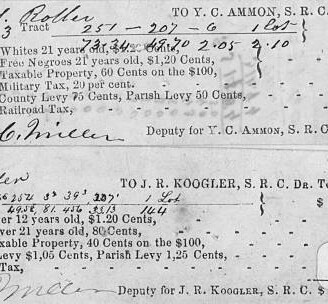 Roller TO Y. C. AMMON, S. R. C
3 Tract 251 - 207 - 6 1 Lot
73.34 49.70 2.05 2.10
Whites 21 years old,
Free Negroes 21 years old, $1,20 Cents,
Taxable Property, 60 Cents on the $100,
Military Tax, 20 per cent.
County Levy 75 Cents, Parish Levy 50 Cents,
Railroad Tax,
C. Miller Deputy for Y. C. AMMON, S. R. C
TO J. R. KOOGLER, S. R. C. DR. To
254 207 1 Lot
81.456 33.13 144
er 12 years old, $1.20 Cents,
ver 21 years old, 80 Cents,
xable Property, 40 Cents on the $100,
Levy $1,05 Cents, Parish Levy 1,25 Cents,
Tax,
Miller Deputy for J. R. KOOGLER, S. R.